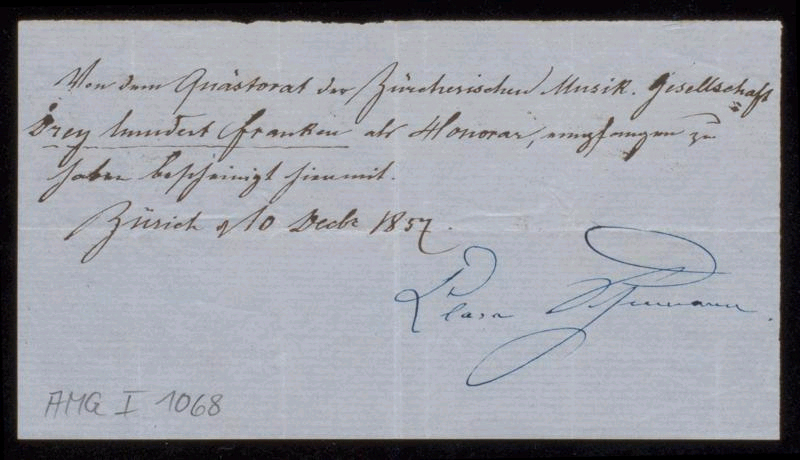 Von dem Quästorat der Zürcherischen Musik. Gesellschaft
Drey hundert Franken als Honorar, empfangen zu
haben bescheinigt hiermit.
Zürich d 10 Decbr 1857.
Clara Schumann.
AMG I 1068